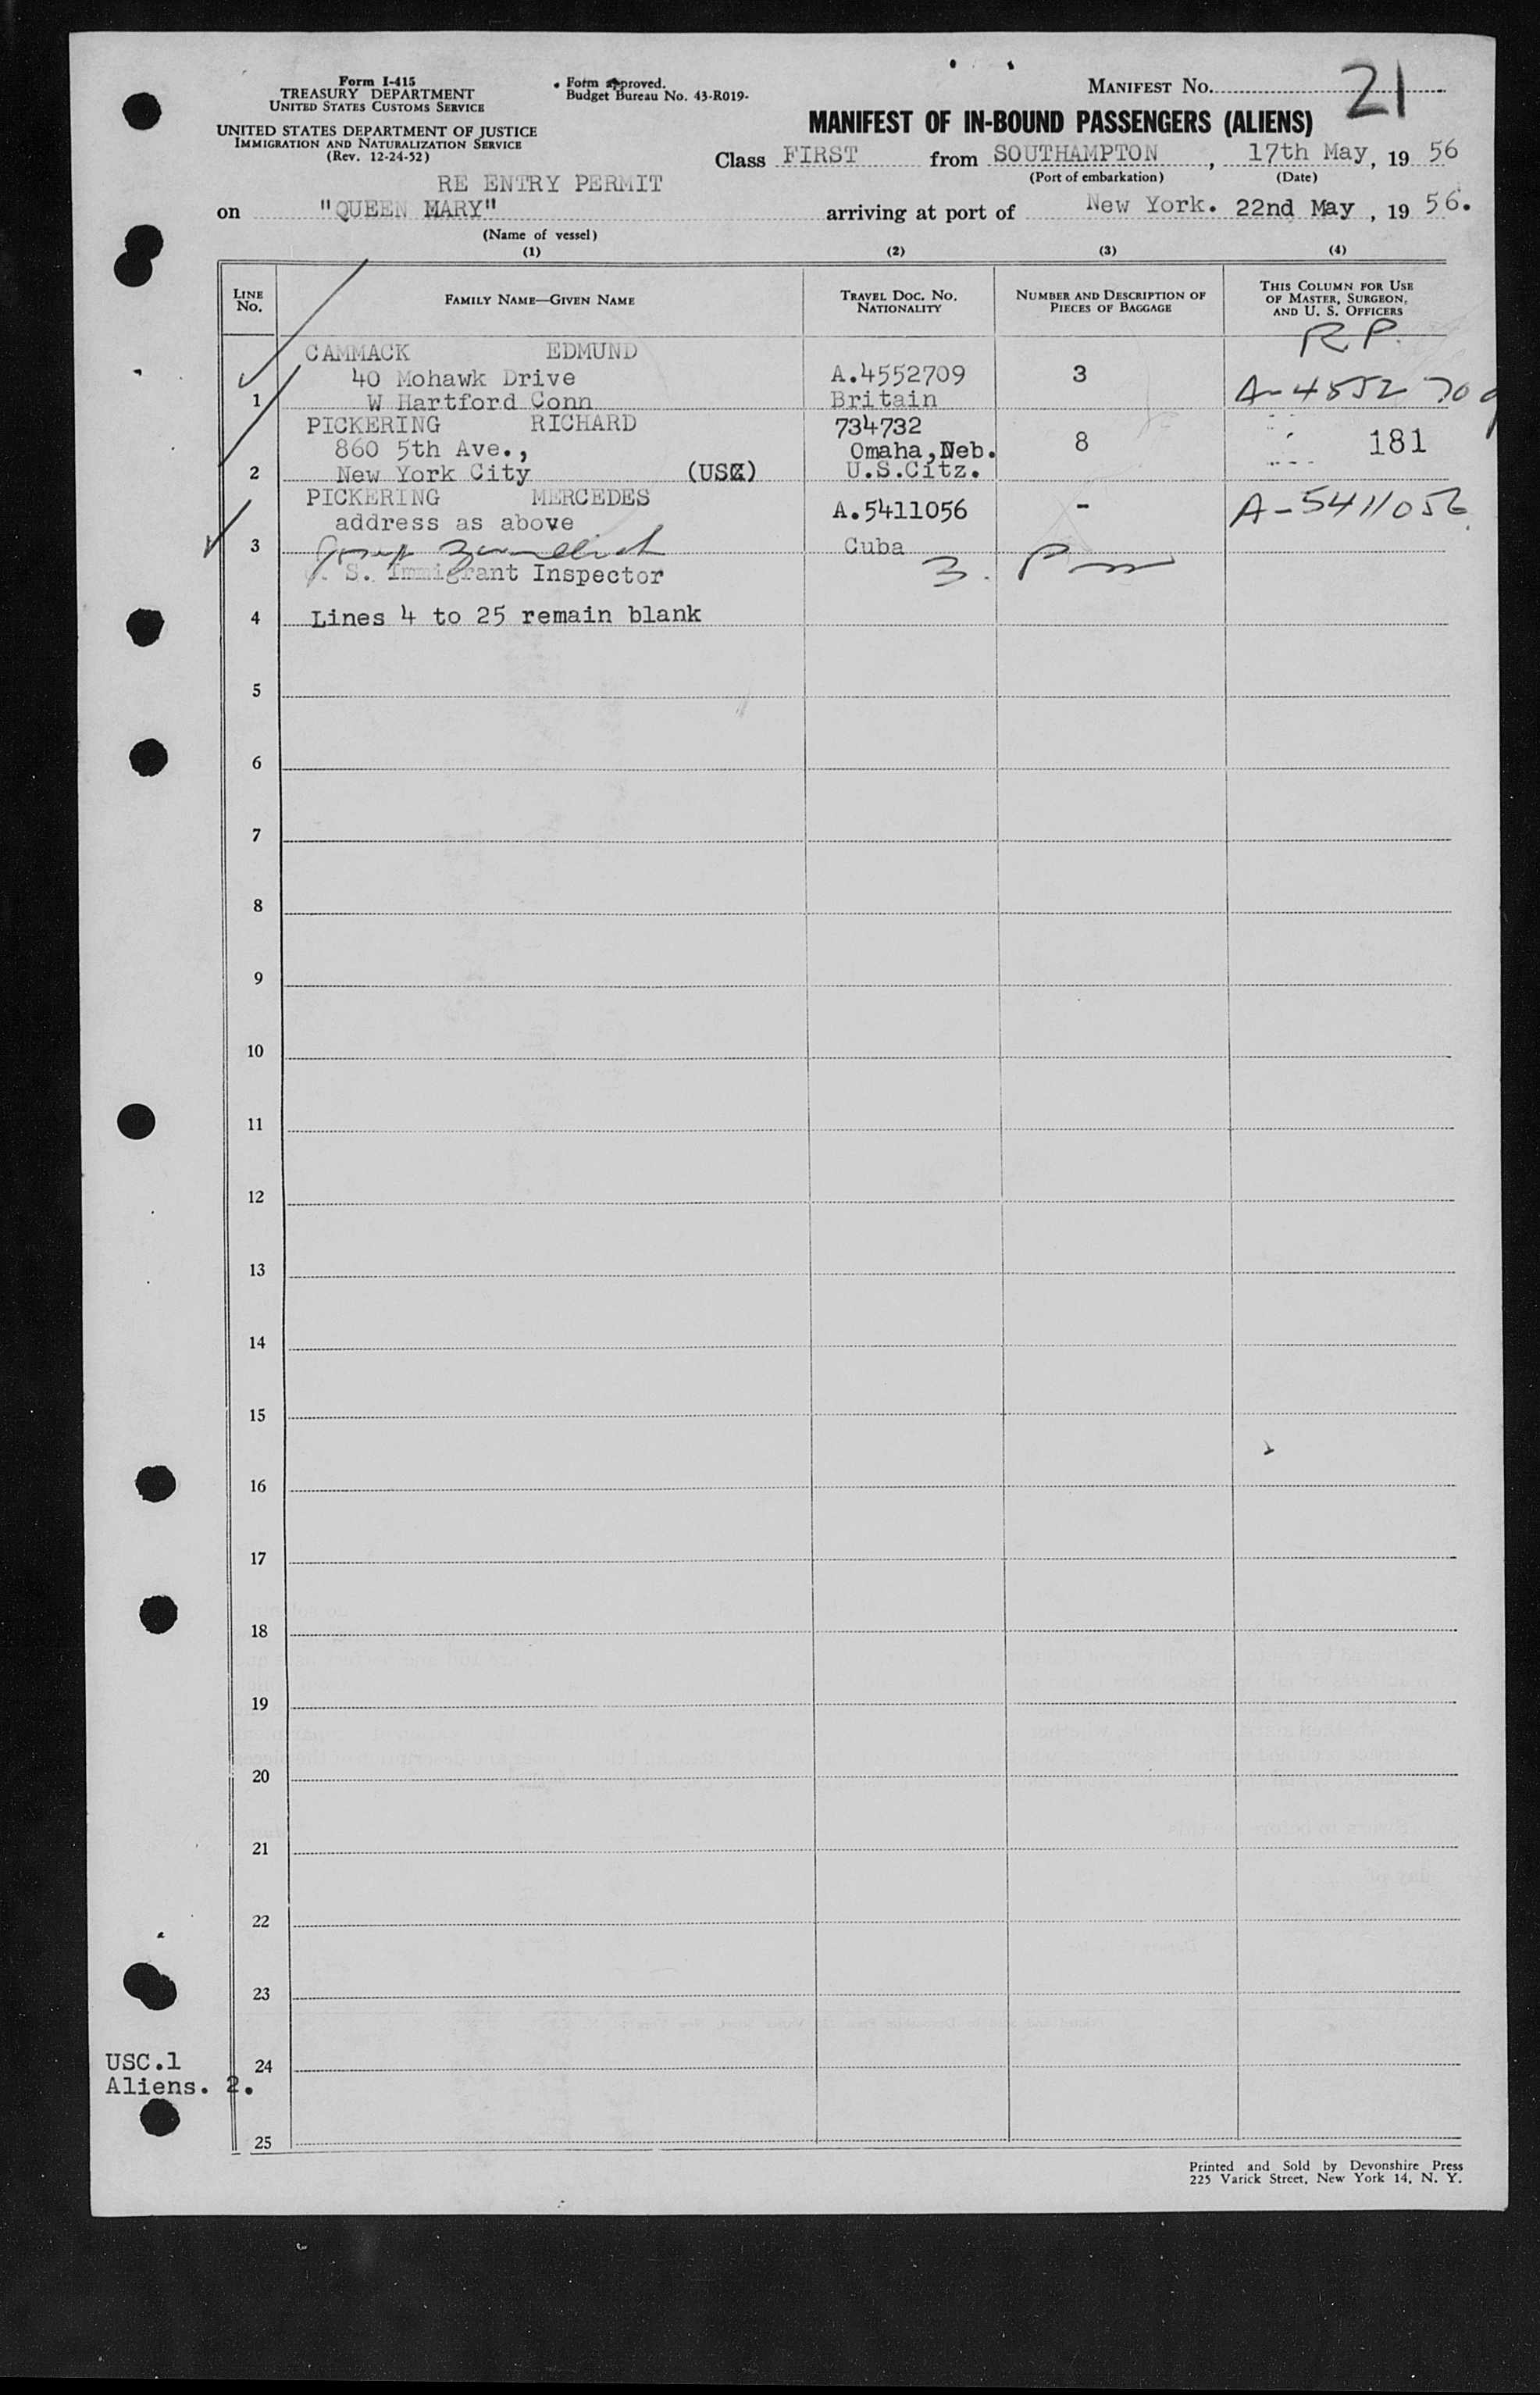 Form I-415
TREASURY DEPARTMENT
UNITED STATES CUSTOMS SERVICE
UNITED STATES DEPARTMENT OF JUSTICE
IMMIGRATION AND NATURALIZATION SERVICE
(Rev. 12-24-52)
Form approved.
Budget Bureau No. 43-R019-
MANIFEST No. 21
MANIFEST OF IN-BOUND PASSENGERS (ALIENS)
Class FIRST from SOUTHAMPTON, 17th May, 19 56
(Port of embarkation) (Date)
RE ENTRY PERMIT
on "QUEEN MARY" arriving at port of New York. 22nd May, 19 56.
(Name of vessel)
(1) (2) (3) (4)
LINE No. FAMILY NAME—GIVEN NAME TRAVEL DOC. No. NATIONALITY NUMBER AND DESCRIPTION OF PIECES OF BAGGAGE THIS COLUMN FOR USE OF MASTER, SURGEON, AND U. S. OFFICERS
R P.
CAMMACK EDMUND
40 Mohawk Drive A.4552709 3 A-4552709
1 W Hartford Conn Britain
PICKERING RICHARD 734732
860 5th Ave., Omaha, Neb. 8 181
2 New York City (USC) U.S.Citz.
PICKERING MERCEDES A.5411056 - A-5411056
address as above
3 Cuba
S. Immigrant Inspector 3.
4 Lines 4 to 25 remain blank
5
6
7
8
9
10
11
12
13
14
15
16
17
18
19
20
21
22
23
USC.1
24
Aliens. 2.
25
Printed and Sold by Devonshire Press
225 Varick Street, New York 14, N. Y.